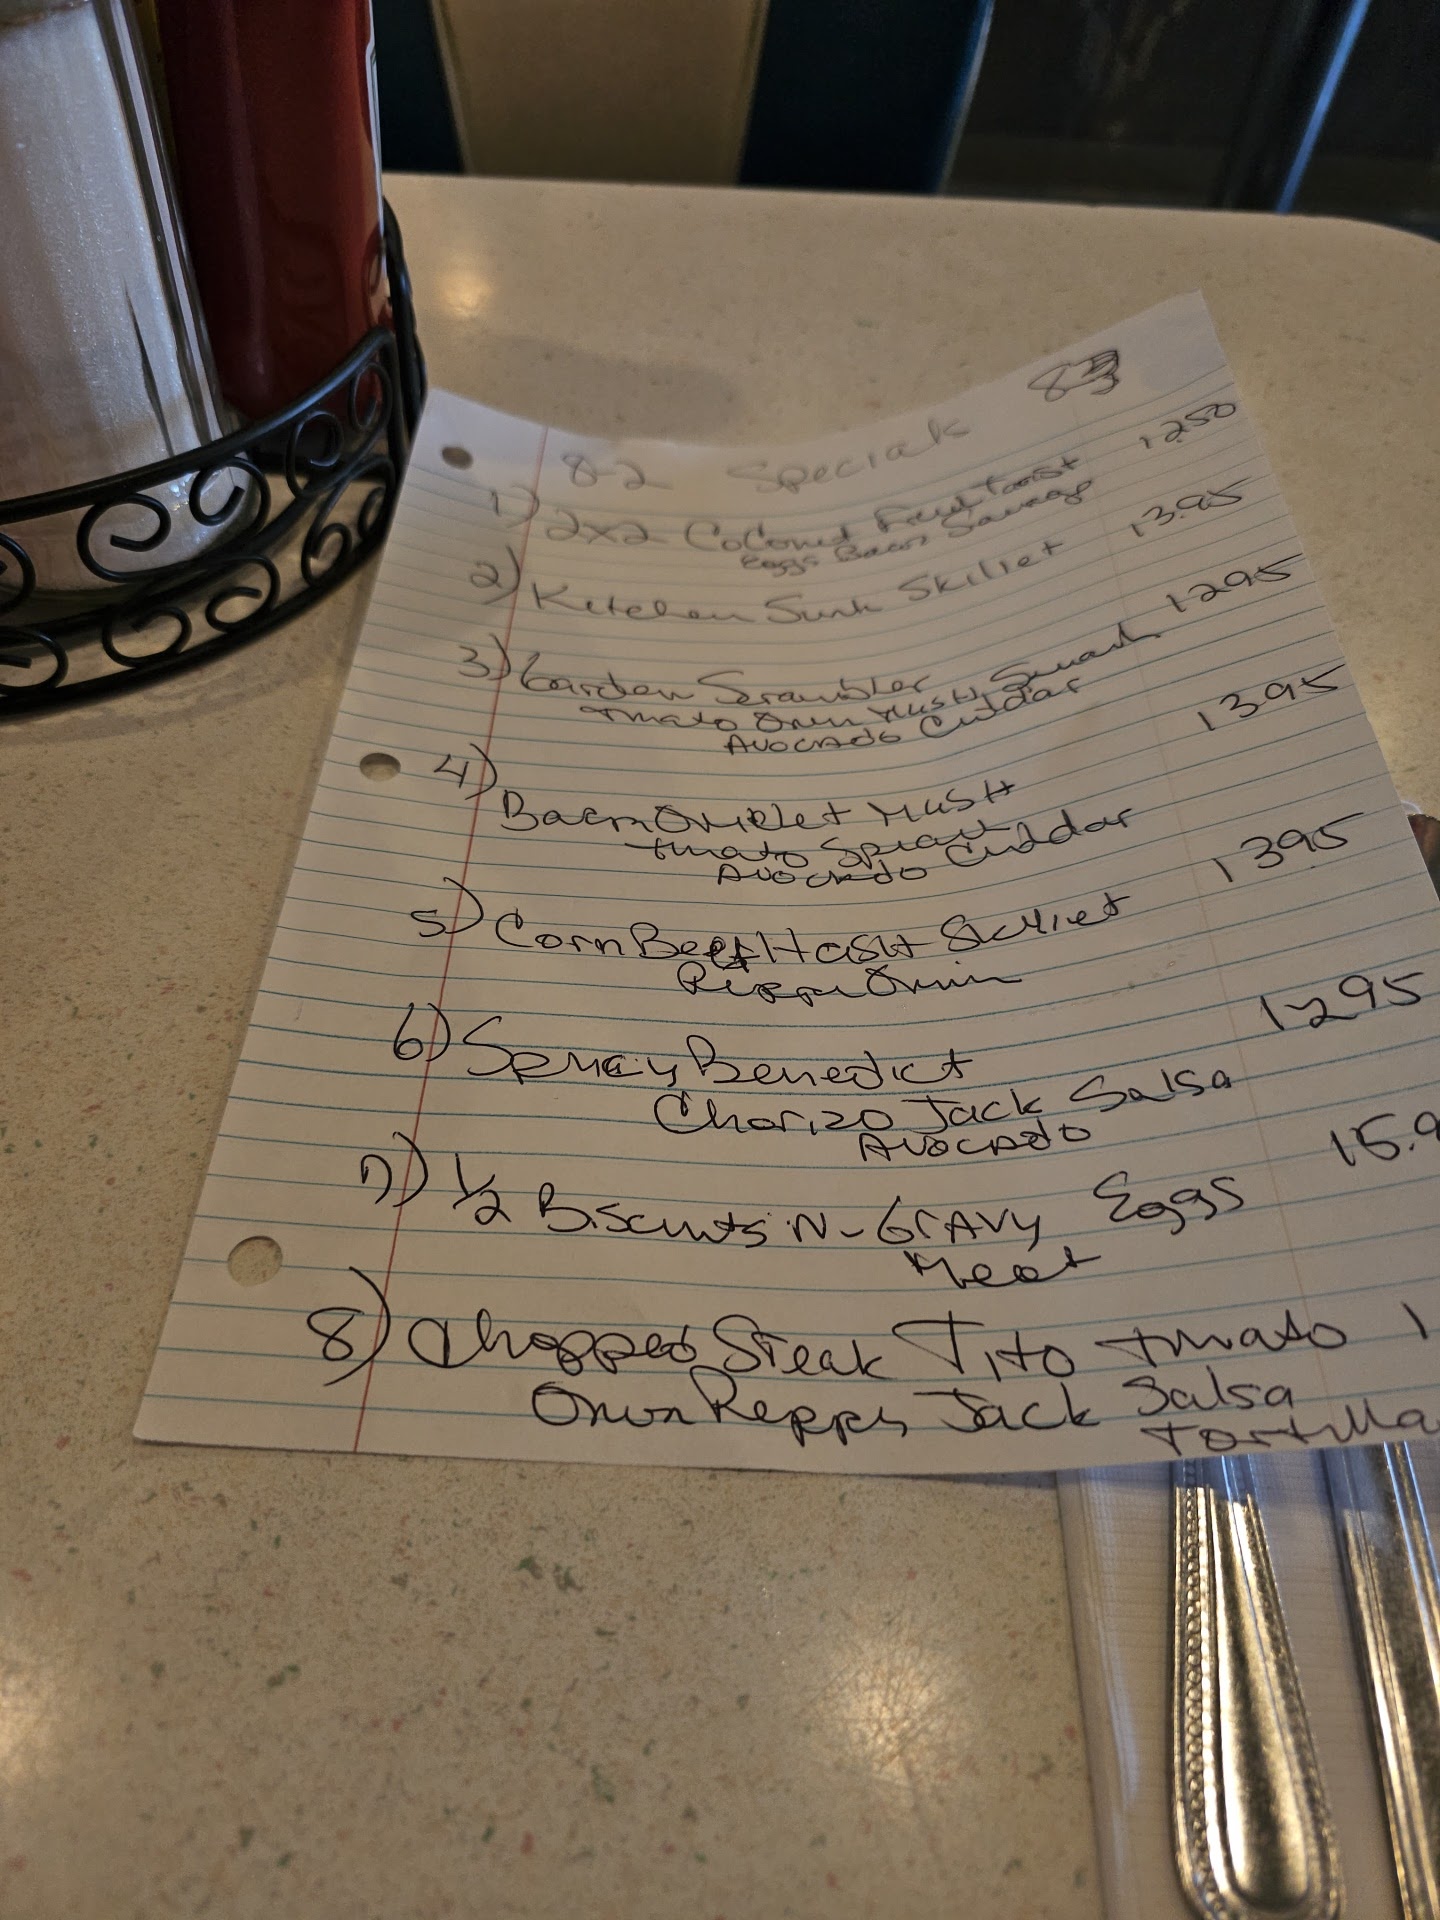 8-2 Specials 83
1) 2x2 Coconut French Toast 1250
Eggs Bacon Sausage
2) Kitchen Sink Skillet 13.95
3) Garden Scrambler 1295
tmato Onin Mush Squash
Avocado Cheddar
4) Bacon Omelet Mush 1395
tmato Spinach
Avocado Cheddar
5) Corn Beef Hash Skillet 1395
Pepper Onin
6) Spicy Benedict 1295
Chorizo Jack Salsa
Avocado
7) 1/2 Biscuits N-Gravy Eggs 15.9
Meat
8) Chopped Steak Tito tmato 1
Onion Peppers Jack Salsa
Tortilla